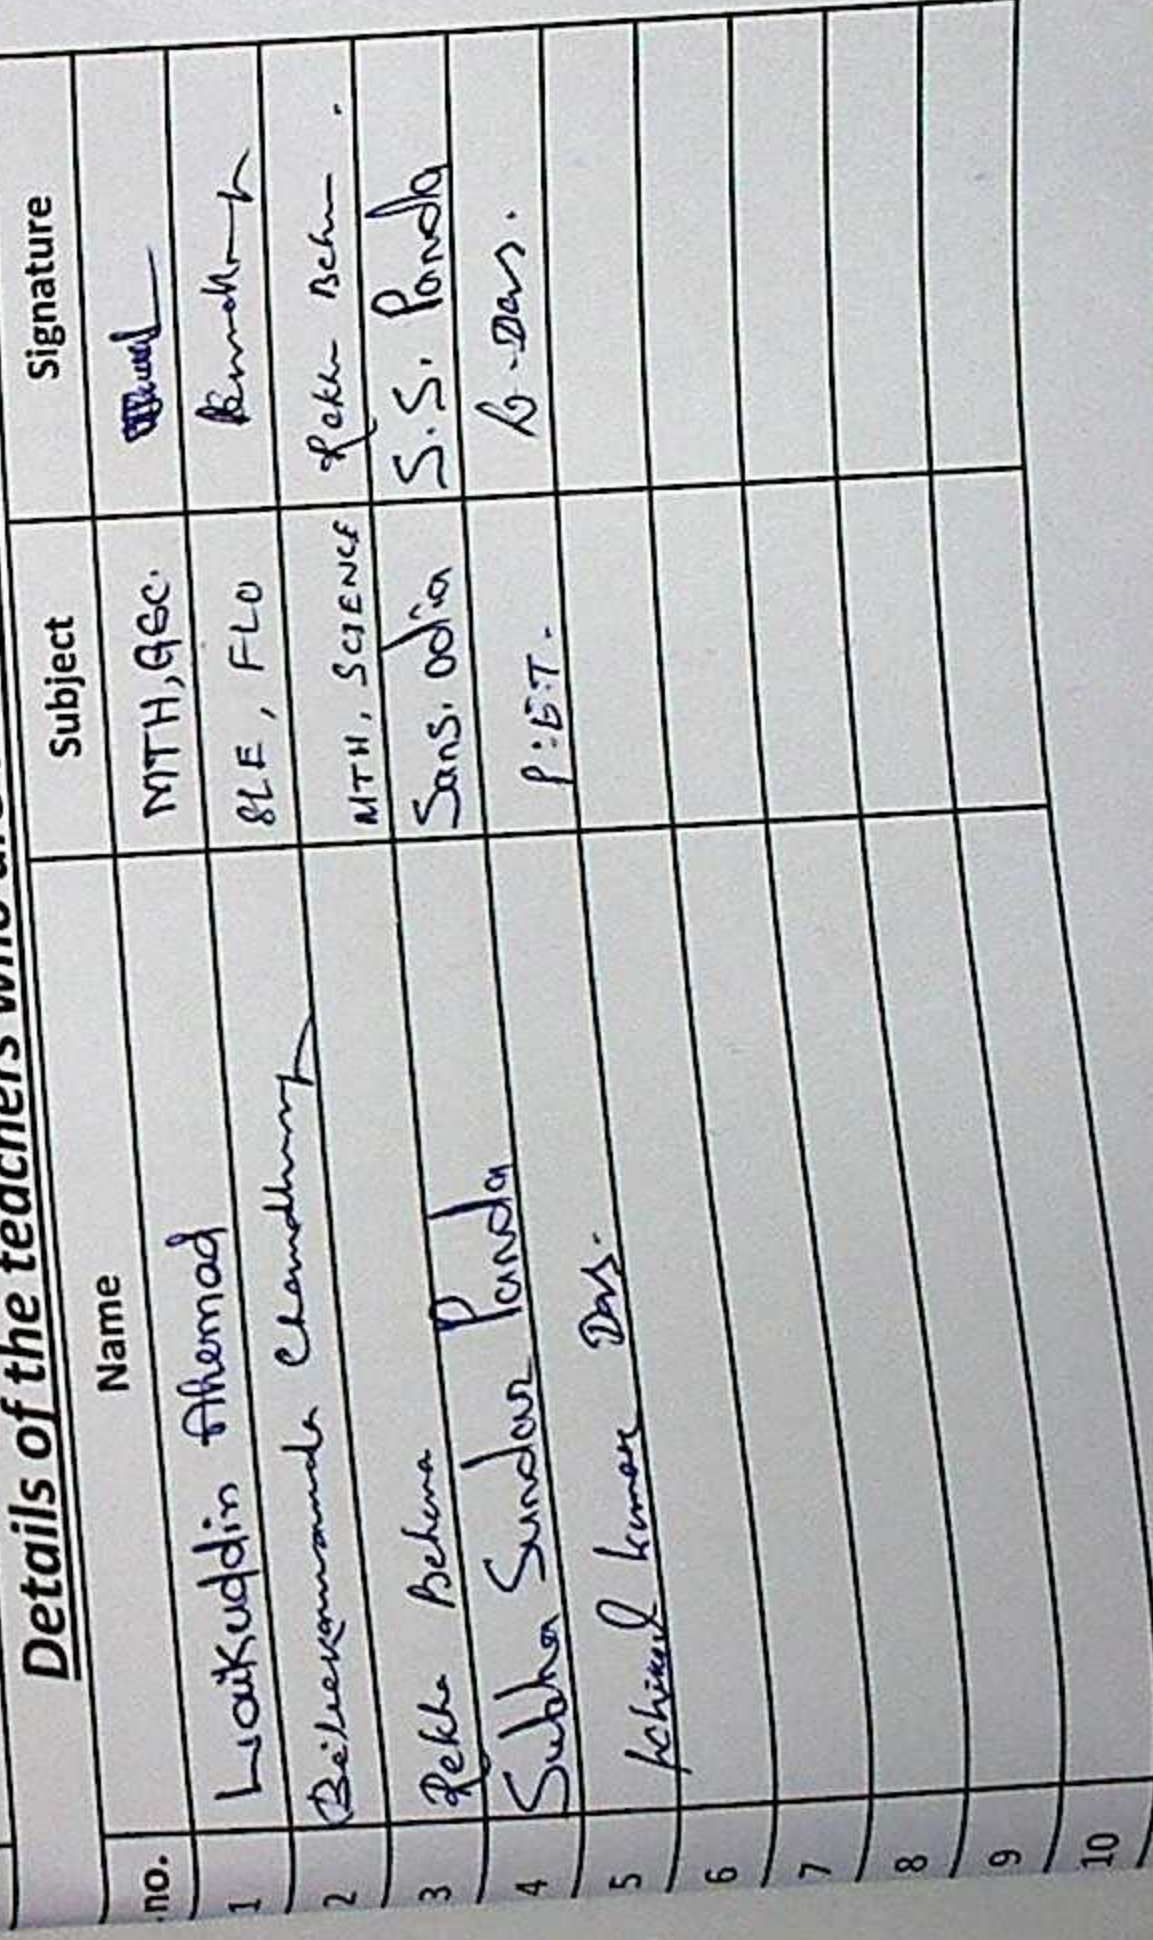 Details of the teachers who
.no. Name Subject Signature
1 Laikuddin Ahemad MTH, GSC.
2 Chamdhury SLE, FLO
3 Rekha Behera MTH, SCIENCE Rekha Behn.
4 Subha Sundar Panda Sans. odia S.S. Panda
5 kumar Das. P.E.T. Das.
6
7
8
9
10